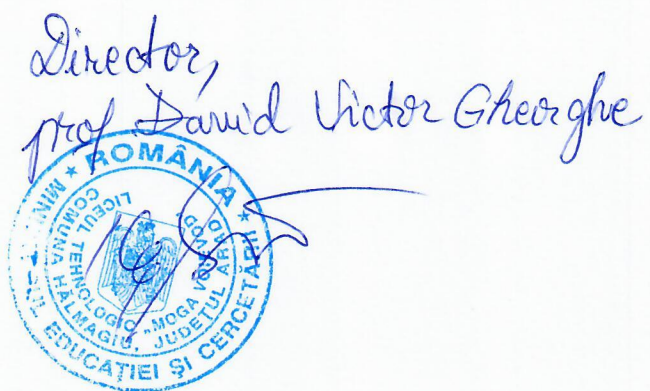 Director,
prof David Victor Gheorghe
* ROMÂNIA *
MINISTERUL EDUCAȚIEI ȘI CERCETĂRII
LICEUL TEHNOLOGIC „MOGA VOIEVOD"
COMUNA HĂLMAGIU, JUDEȚUL ARAD